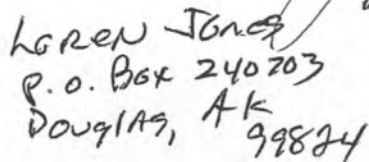 Loren Jones
P.O. Box 240703
Douglas, AK
99824